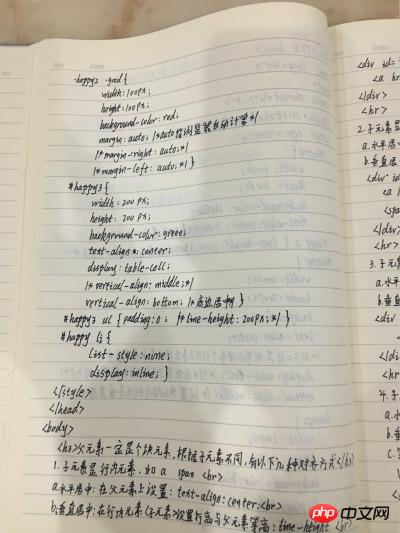 No.
Date
·happy2 .good {
width: 100px;
height: 100px;
background-color: red;
margin: auto; /*auto 指浏览器自动计算*/
/*margin-right: auto;*/
/*margin-left: auto;*/ }
#happy3 {
width: 200px;
height: 200px;
background-color: green;
text-align: center;
display: table-cell;
/*vertical-align: middle;*/
vertical-align: bottom; /*底边居中*/ }
#happy3 ul { padding: 0; /*line-height: 200px;*/ }
#happy li {
list-style: none;
display: inline; }
</style>
</head>
<body>
<h3>父元素一定是个块元素,根据子元素不同,有以下几种对齐方式</h3>
1.子元素是行内元素,如 a span <br>
a.水平居中: 在父元素上设置: text-align: center; <br>
b.垂直居中: 在行内元素(子元素)设置行高与父元素等高: line-height <br>
No.
Date
<div id=
<a hr
</div>
<hr>
2.子元素是
a.水平居
b.垂直居
<div id
<a
<spa
</div>
<hr>
3.子元
a.水平
b.垂直
<div
<hr
4.子
a.水
b.垂
php 中文网